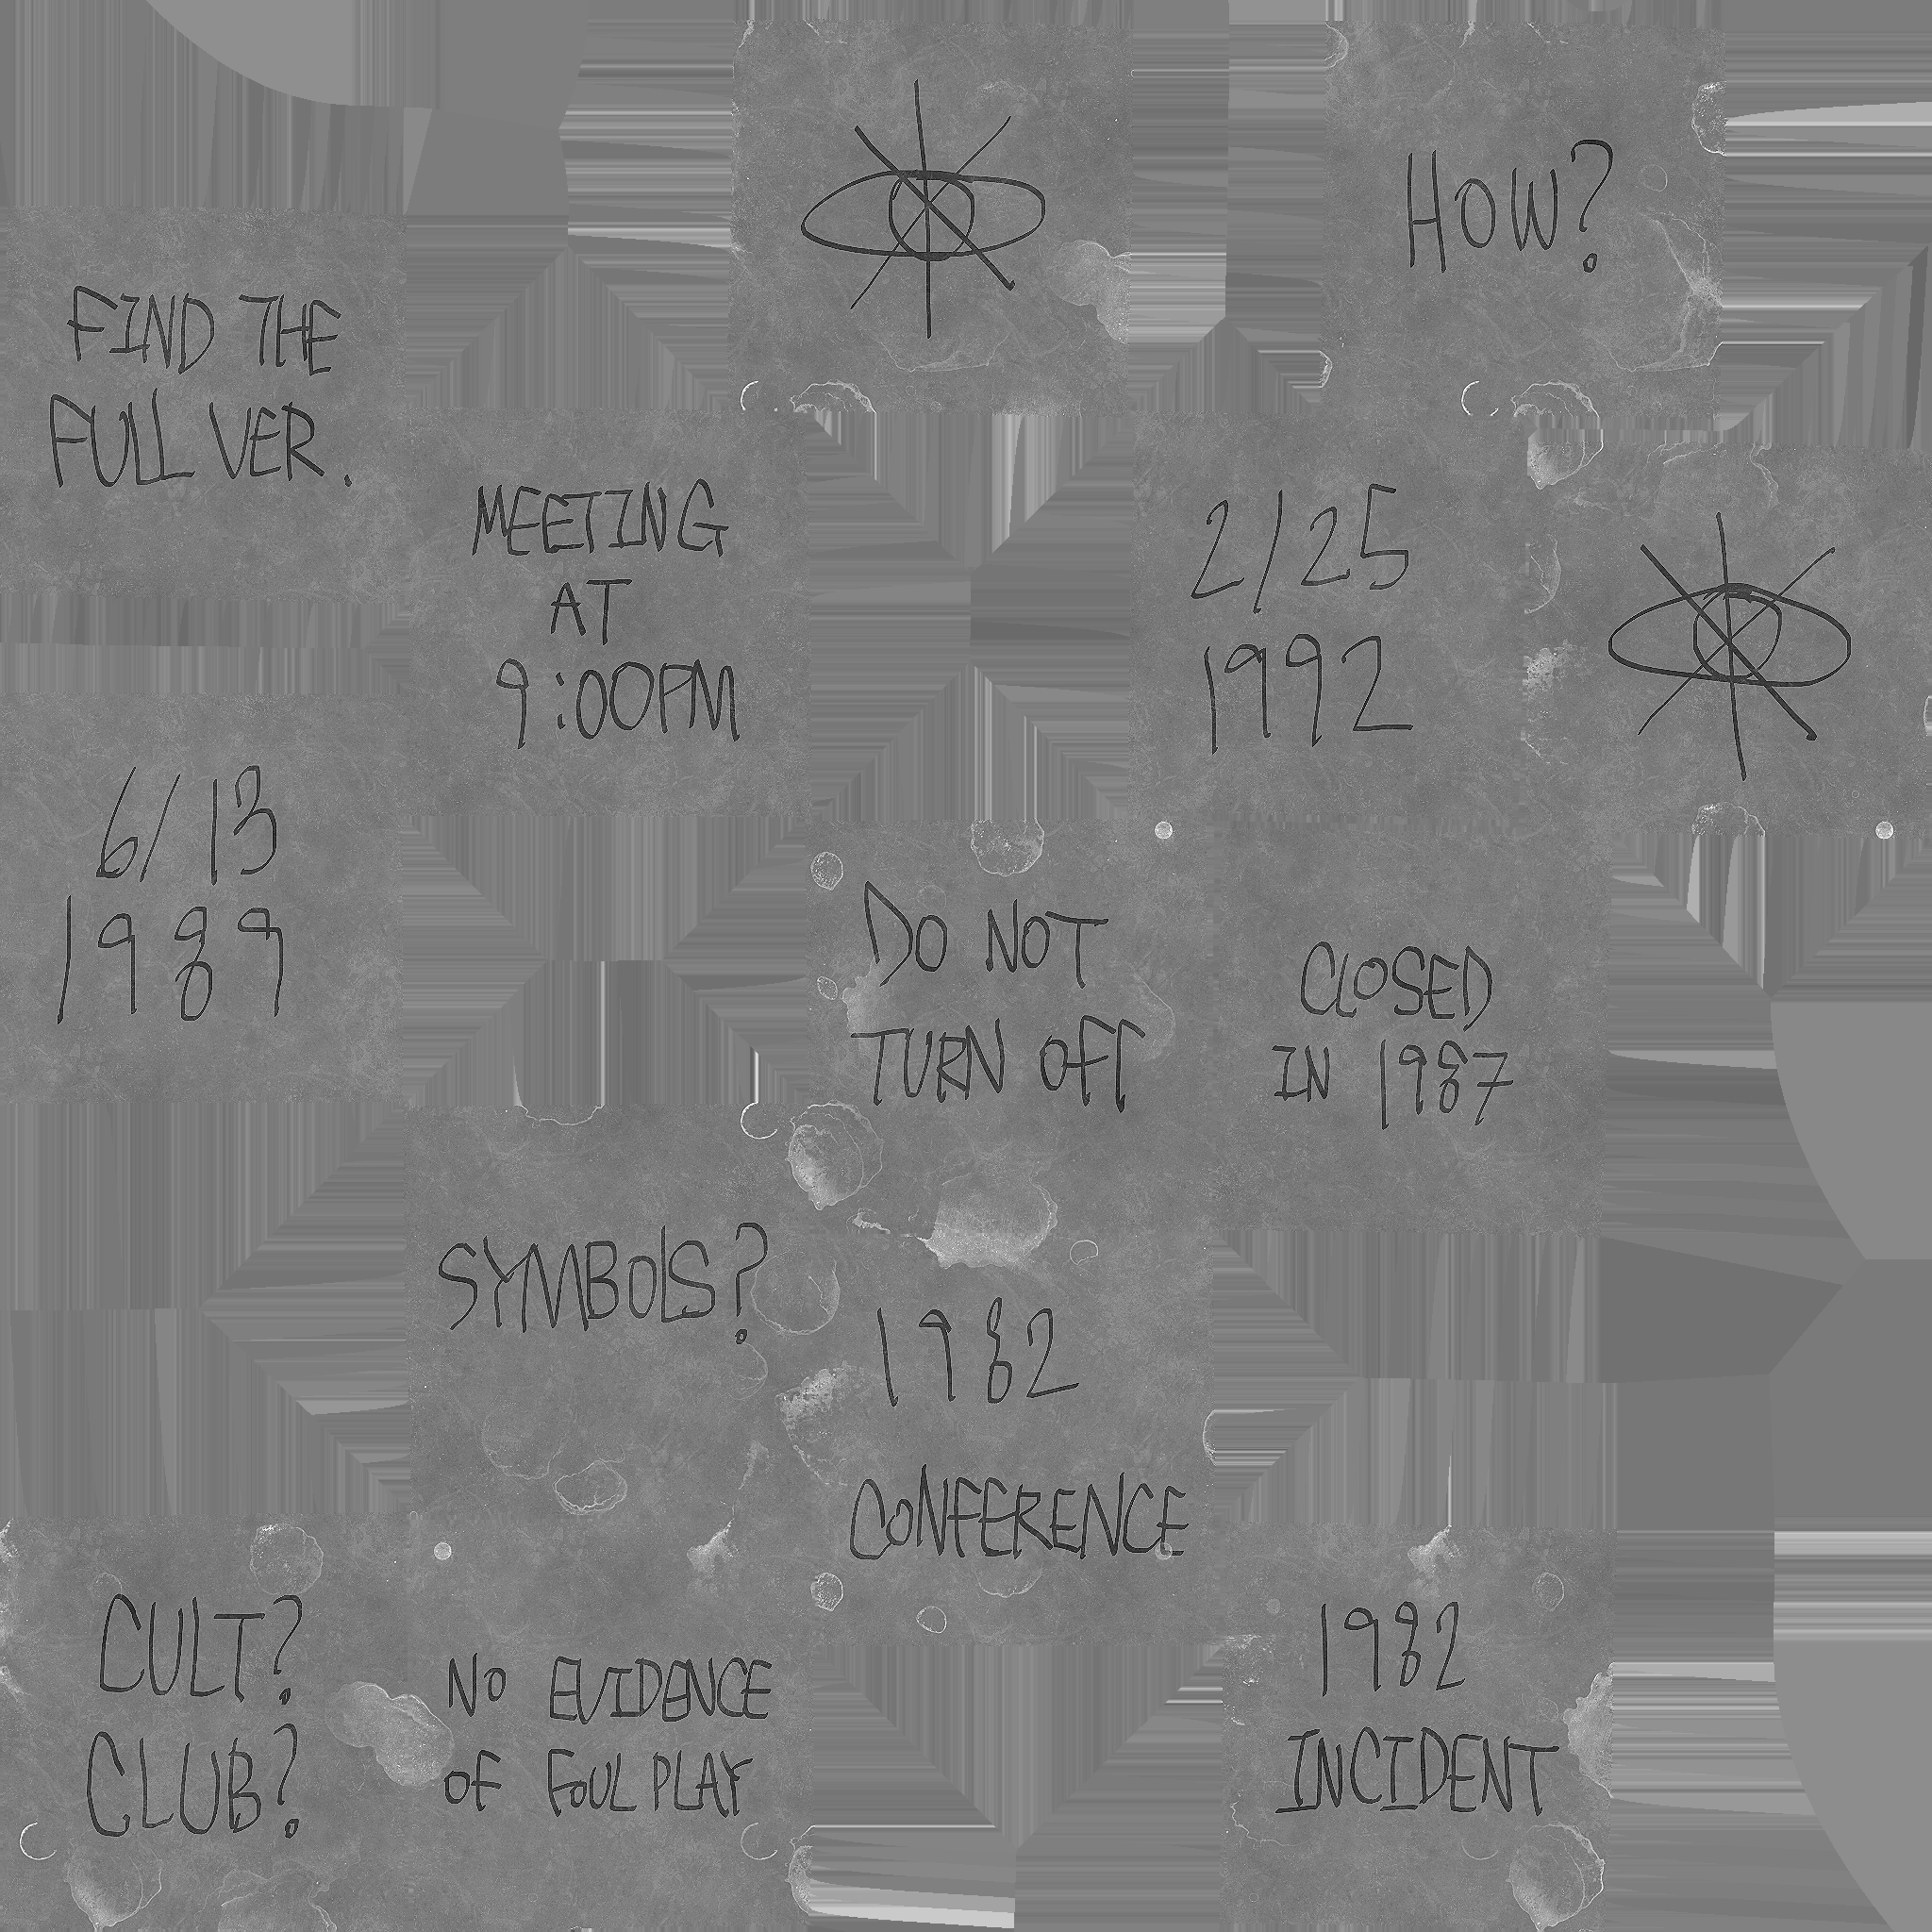 HOW?
FIND THE
FULL VER.
MEETING
AT
9:00PM
2/25
1992
6/13
1989
DO NOT
TURN OFF
CLOSED
IN 1987
SYMBOLS?
1982
CONFERENCE
CULT?
CLUB?
NO EVIDENCE
OF FOUL PLAY
1982
INCIDENT